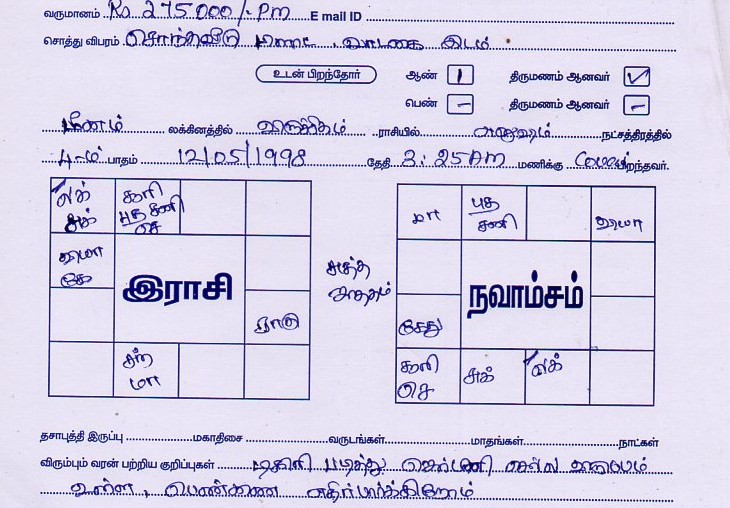 வருமானம் Rs 275000/- Pm E mail ID
சொத்து விபரம் சொந்தவீடு மனை, வாடகை இடம்
உடன் பிறந்தோர் ஆண் 1 திருமணம் ஆனவர் ✓
பெண் - திருமணம் ஆனவர் -
மீனம் லக்கினத்தில் விருச்சிகம் ராசியில் அனுஷம் நட்சத்திரத்தில்
4-ம் பாதம் 12/05/1998 தேதி 3:25 AM மணிக்கு பிறந்தவர்.
லக் சுக் சூரி புத சனி செ
மா புத சனி வியா
வியா கே
இராசி
சுத்த ஜாதகம்
நவாம்சம்
ராகு
கேது
சந் மா
சூரி செ சுக் லக்
தசாபுத்தி இருப்பு மகாதிசை வருடங்கள் மாதங்கள் நாட்கள்
விரும்பும் வரன் பற்றிய குறிப்புகள் டிகிரி படித்து ஜெர்மனி செல்ல விருப்பம்
உள்ள, பெண்ணை எதிர்பார்க்கிறோம்